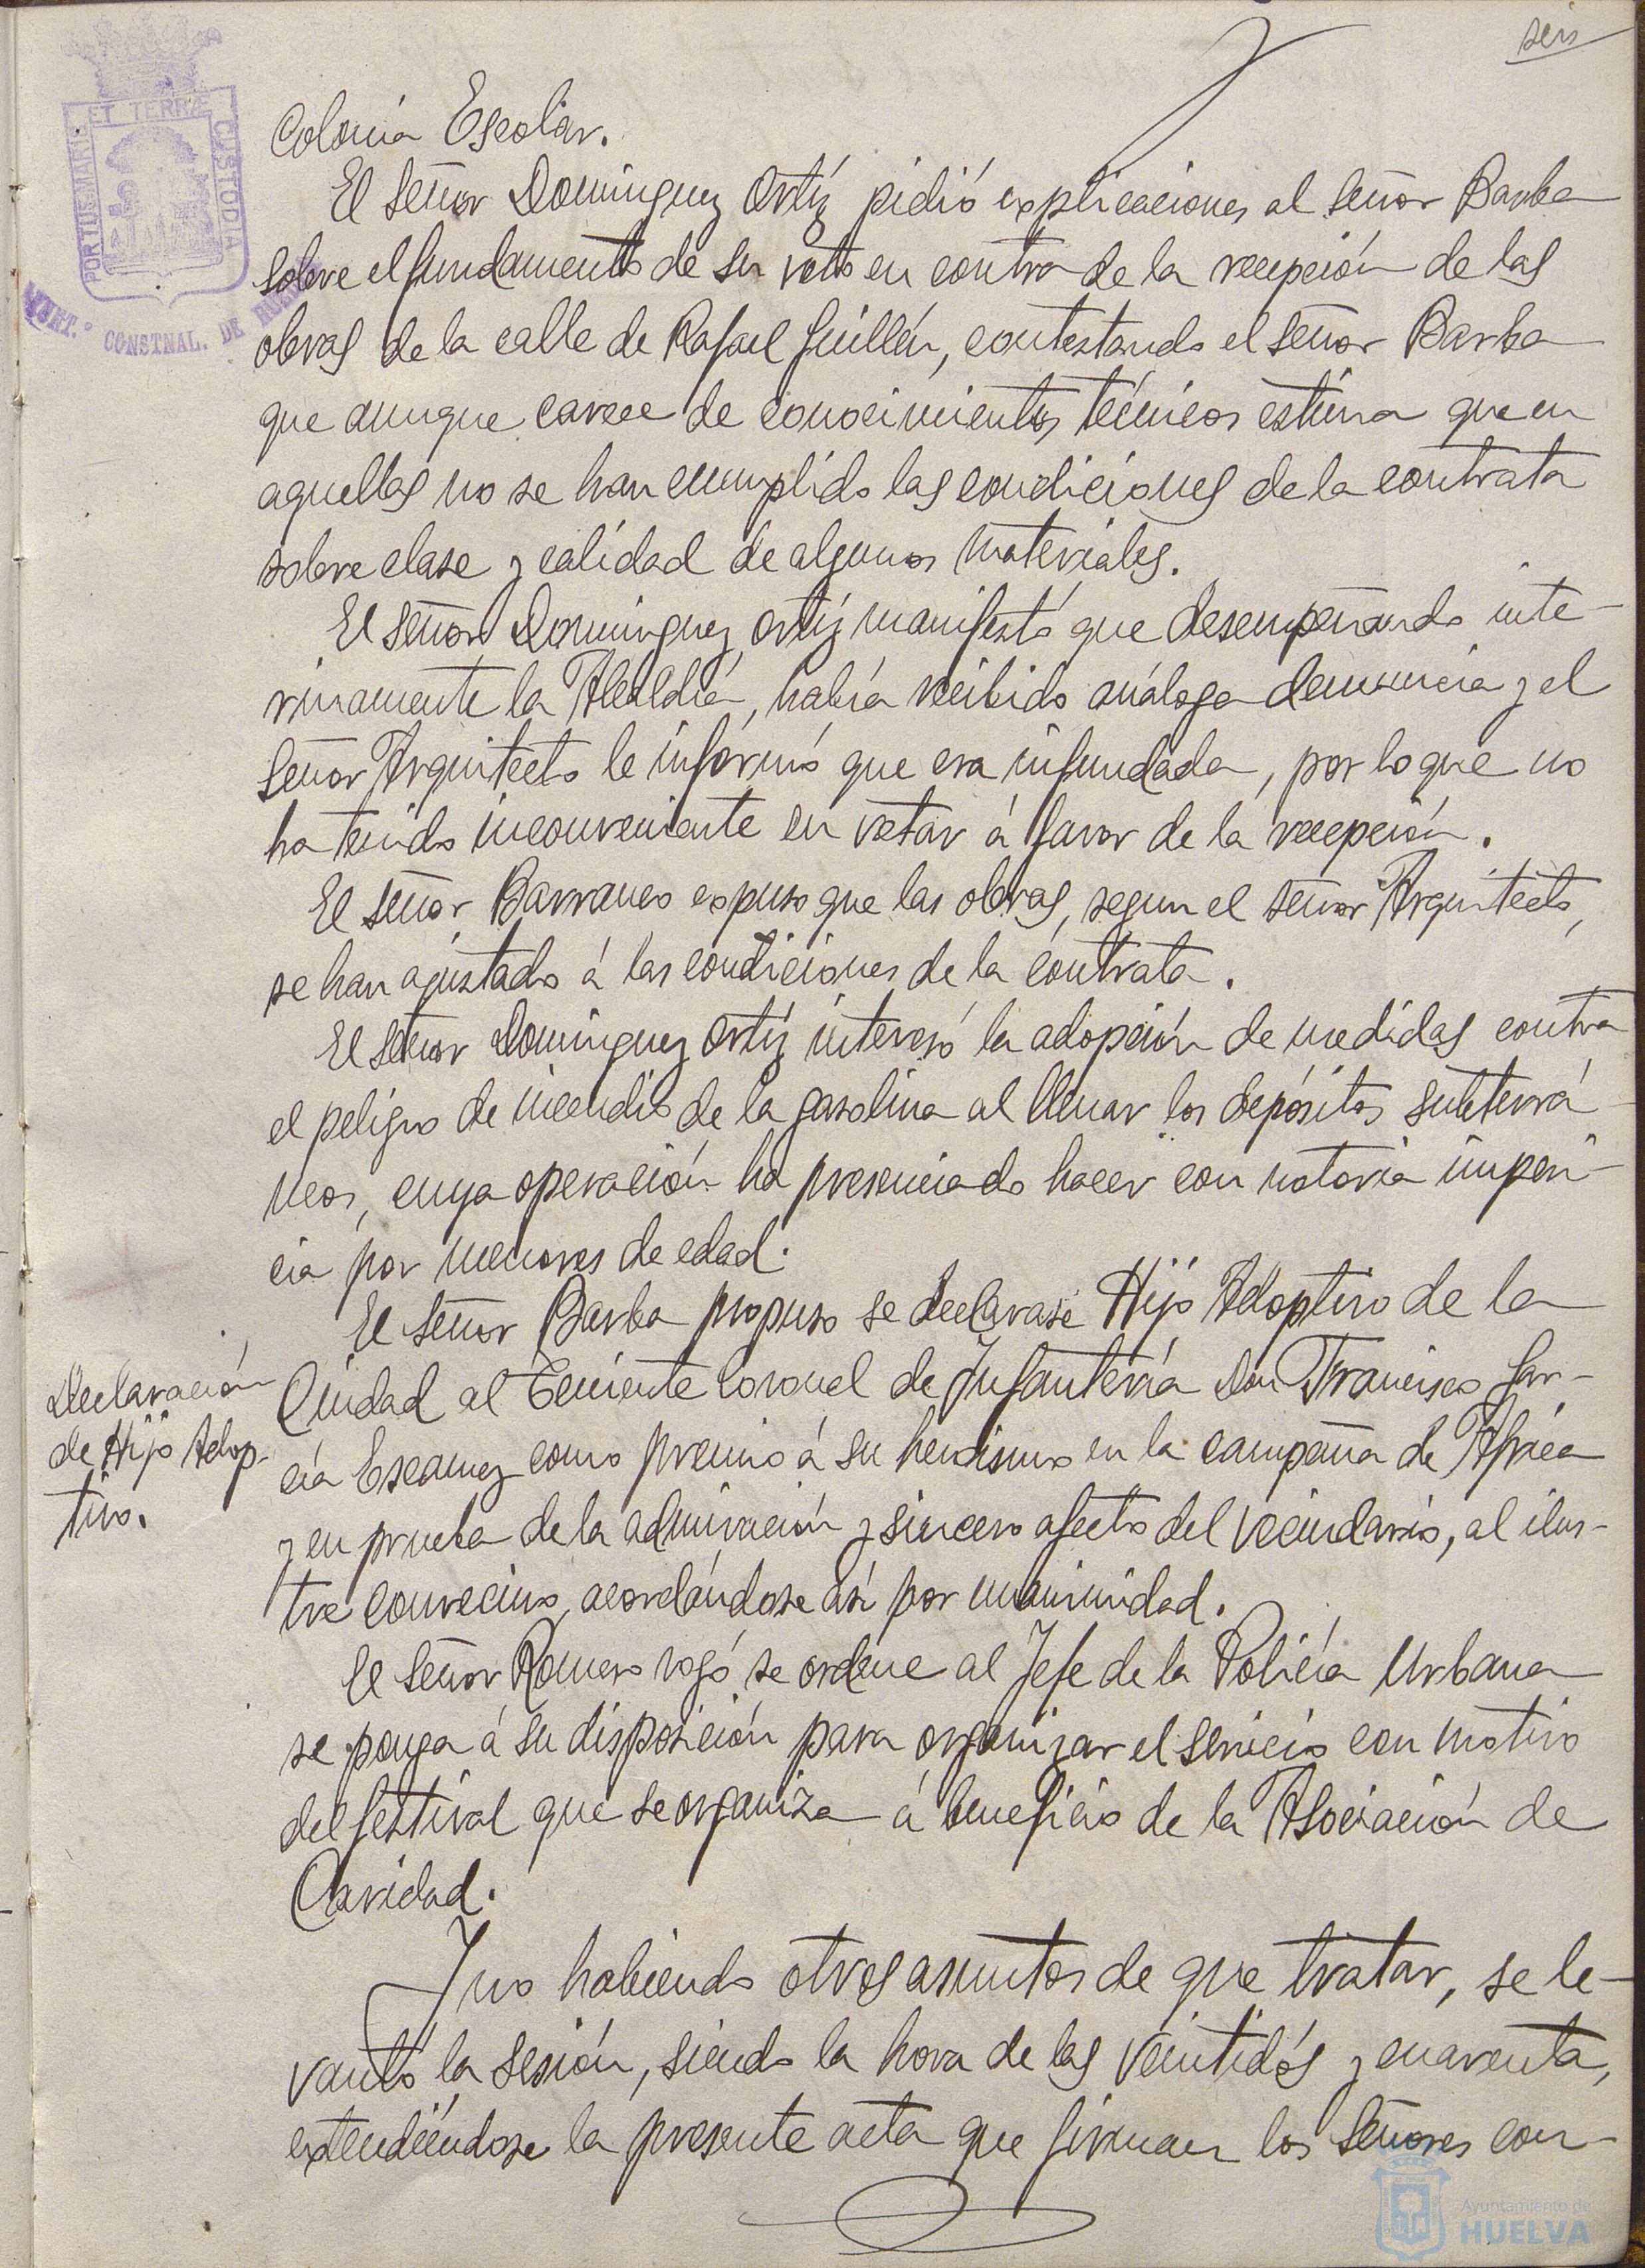 seis
PORTUS MARIS ET TERRÆ CUSTODIA
AYUNT.º CONSTNAL. DE HUELVA
Colonia Escolar.
El señor Dominguez Ortíz pidió explicaciones al señor Barba
sobre el fundamento de su voto en contra de la recepción de las
obras de la calle de Rafael Guillén, contestando el señor Barba
que aunque carece de conocimientos técnicos estima que en
aquellas no se han cumplido las condiciones de la contrata
sobre clase y calidad de algunos materiales.
El señor Dominguez Ortíz manifestó que desempeñando inte-
rinamente la Alcaldía, había recibido análoga denuncia y el
señor Arquitecto le informó que era infundada, por lo que no
ha tenido inconveniente en votar á favor de la recepción.
El señor Barranco expuso que las obras, segun el señor Arquitecto,
se han ajustado á las condiciones de la contrata.
El señor Dominguez Ortíz interesó la adopción de medidas contra
el peligro de incendio de la gasolina al llenar los depósitos subterrá-
neos, cuya operación ha presenciado hacer con notoria imperi-
cia por menores de edad.
El señor Barba propuso se declarase Hijo Adoptivo de la
Declaración
de Hijo Adop-
tivo.
Ciudad al Teniente Coronel de Infantería Don Francisco Gar-
cía Escamez como premio á su heroismo en la campaña de Africa
y en prueba de la admiración y sincero afecto del vecindario, al ilus-
tre convecino, acordándose así por unanimidad.
El señor Romero rogó se ordene al Jefe de la Policía Urbana
se ponga á su disposición para organizar el servicio con motivo
del festival que se organiza á beneficio de la Asociación de
Caridad.
Y no habiendo otros asuntos de que tratar, se le-
vantó la sesión, siendo la hora de las veintidós y cuarenta,
extendiéndose la presente acta que firman los señores con-
Ayuntamiento de
HUELVA